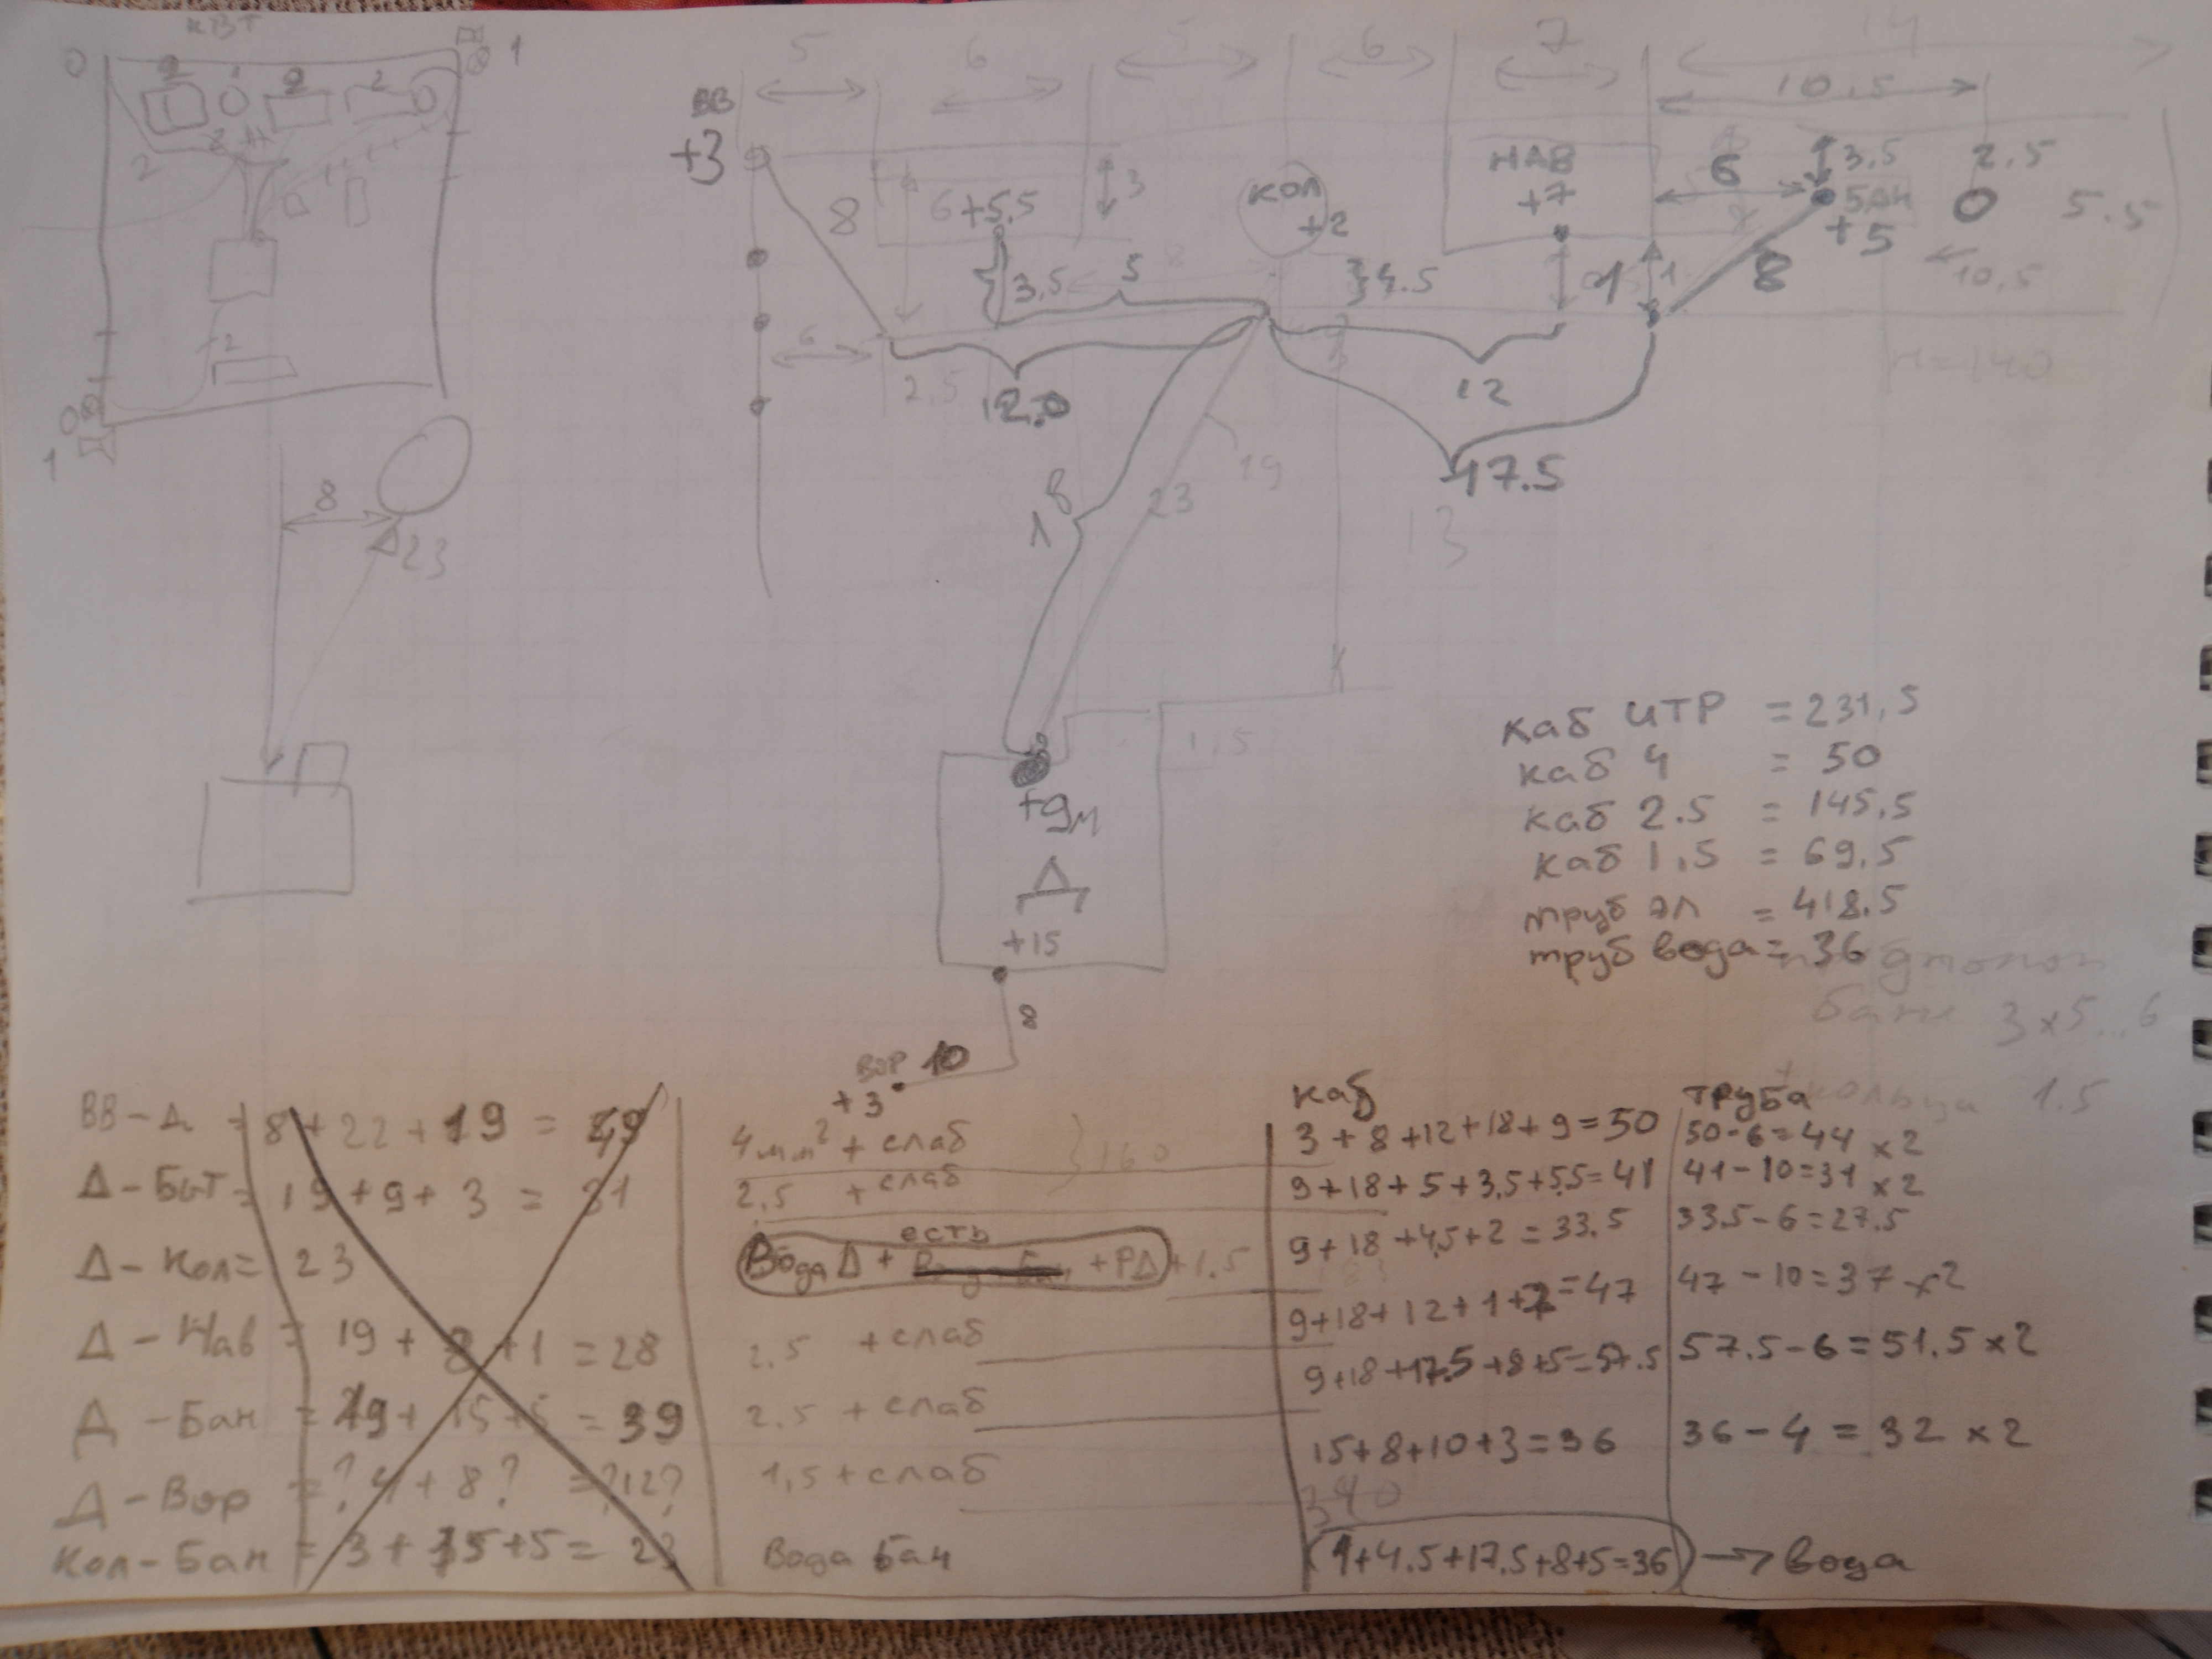 КВТ
0
1
2
1
2
2
2
2
2
0
1
8
23
5
6
5
6
7
14
10.5
ВВ
+3
8
6+5.5
3
КОЛ
+2
НАВ
+7
6
3.5
БАН
+5
2.5
5.5
10,5
3.5
5
4.5
1
1
8
6
2.5
12.0
12
17.5
n=140
18
23
19
13
1.5
+9м
Д
+15
8
ВОР 10
+3
каб ИТР = 231,5
каб 4 = 50
каб 2.5 = 145.5
каб 1.5 = 69.5
труб эл = 418.5
труб вода = 36
бани 3x5...6
кольца 1.5
ВВ-Д = 8+22+19 = 49
Д-Быт = 19+9+3 = 31
Д-Кол = 23
Д-Нав = 19+8+1 = 28
Д-Бан = 19+15+5 = 39
Д-Вор = ?4+8? =?12?
Кол-Бан = 3+15+5 = 23
4мм² + слаб
}160
2.5 + слаб
есть
Вода Д + +РД +1.5
2.5 + слаб
2.5 + слаб
1,5 + слаб
Вода бан
каб
3+8+12+18+9=50
9+18+5+3.5+5.5=41
9+18+4.5+2=33.5
9+18+12+1+7=47
9+18+17.5+8+5=57.5
15+8+10+3=36
340
(1+4.5+17.5+8+5=36) → вода
труба
50-6=44 x2
41-10=31 x2
33.5-6=27.5
47-10=37 x2
57.5-6=51.5 x2
36-4=32 x2